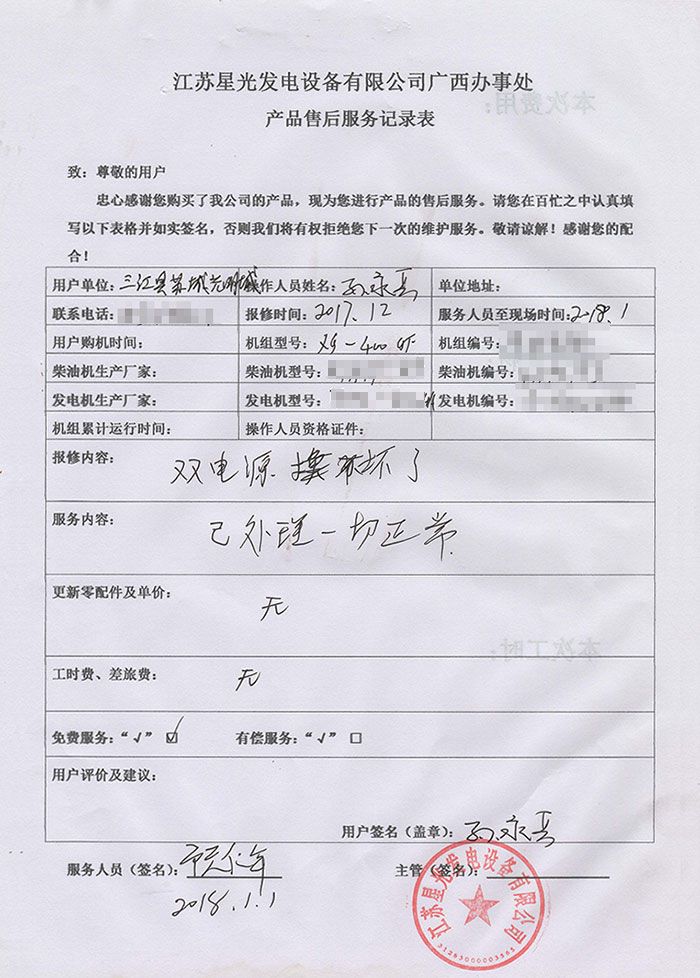 江苏星光发电设备有限公司广西办事处
产品售后服务记录表
致：尊敬的用户
忠心感谢您购买了我公司的产品，现为您进行产品的售后服务。请您在百忙之中认真填
写以下表格并如实签名，否则我们将有权拒绝您下一次的维护服务。敬请谅解！感谢您的配
合！
用户单位：三江县 城 城 操作人员姓名： 永 单位地址：
联系电话： 报修时间：2017.12 服务人员至现场时间：2018.1
用户购机时间： 机组型号： -400GF 机组编号：
柴油机生产厂家： 柴油机型号： 柴油机编号：
发电机生产厂家： 发电机型号： 发电机编号：
机组累计运行时间： 操作人员资格证件：
报修内容： 双电源 坏了
服务内容： 已处理一切正常
更新零配件及单价： 无
工时费、差旅费： 无
免费服务：“√” ☑ 有偿服务：“√” □
用户评价及建议：
用户签名（盖章）： 永
服务人员（签名）： 主管（签名）：
2018.1.1
江苏星光发电设备有限公司
本次费用：
本次工时：